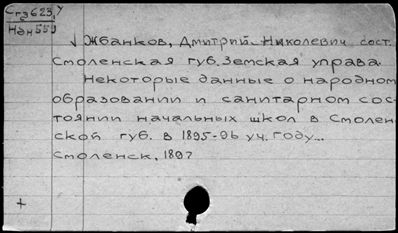 Сга623,у
Надн559
Жбанков, Дмитрий Николевич сост.
Смоленская губ. Земская управа
Некоторые данные о народном
образовании и санитарном сос-
тоянии начальных школ в Смолен
ской губ. в 1895-96 уч. году...
Смоленск, 1897
+